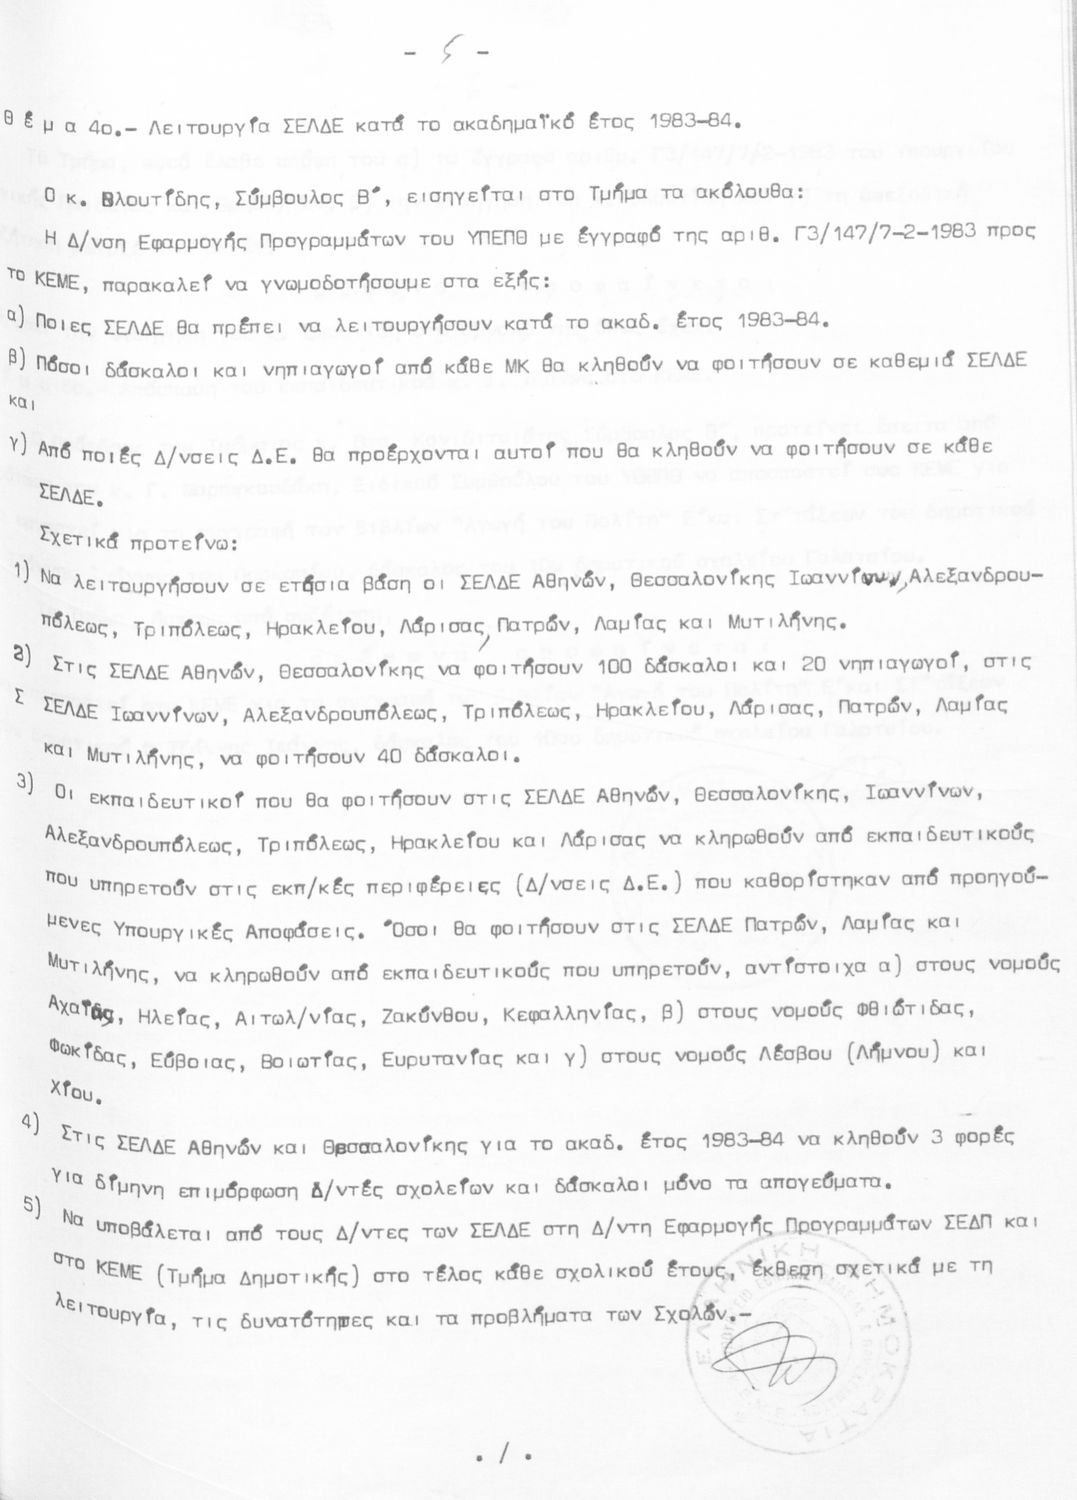 - 5 -
Θ έ μ α 4ο.- Λειτουργία ΣΕΛΔΕ κατά το ακαδημαϊκό έτος 1983-84.
Ο κ. Βλουτίδης, Σύμβουλος Β', εισηγείται στο Τμήμα τα ακόλουθα:
Η Δ/νση Εφαρμογής Προγραμμάτων του ΥΠΕΠΘ με έγγραφό της αριθ. Γ3/147/7-2-1983 προς
το ΚΕΜΕ, παρακαλεί να γνωμοδοτήσουμε στα εξής:
α) Ποιες ΣΕΛΔΕ θα πρέπει να λειτουργήσουν κατά το ακαδ. έτος 1983-84.
β) Πόσοι δάσκαλοι και νηπιαγωγοί από κάθε ΜΚ θα κληθούν να φοιτήσουν σε καθεμιά ΣΕΛΔΕ
και
γ) Από ποιές Δ/νσεις Δ.Ε. θα προέρχονται αυτοί που θα κληθούν να φοιτήσουν σε κάθε
ΣΕΛΔΕ.
Σχετικά προτείνω:
1) Να λειτουργήσουν σε ετήσια βάση οι ΣΕΛΔΕ Αθηνών, Θεσσαλονίκης Ιωαννίνων, Αλεξανδρου-
πόλεως, Τριπόλεως, Ηρακλείου, Λάρισας, Πατρών, Λαμίας και Μυτιλήνης.
2) Στις ΣΕΛΔΕ Αθηνών, Θεσσαλονίκης να φοιτήσουν 100 δάσκαλοι και 20 νηπιαγωγοί, στις
Σ ΣΕΛΔΕ Ιωαννίνων, Αλεξανδρουπόλεως, Τριπόλεως, Ηρακλείου, Λάρισας, Πατρών, Λαμίας
και Μυτιλήνης, να φοιτήσουν 40 δάσκαλοι.
3) Οι εκπαιδευτικοί που θα φοιτήσουν στις ΣΕΛΔΕ Αθηνών, Θεσσαλονίκης, Ιωαννίνων,
Αλεξανδρουπόλεως, Τριπόλεως, Ηρακλείου και Λάρισας να κληρωθούν από εκπαιδευτικούς
που υπηρετούν στις εκπ/κές περιφέρειες (Δ/νσεις Δ.Ε.) που καθορίστηκαν από προηγού-
μενες Υπουργικές Αποφάσεις. Όσοι θα φοιτήσουν στις ΣΕΛΔΕ Πατρών, Λαμίας και
Μυτιλήνης, να κληρωθούν από εκπαιδευτικούς που υπηρετούν, αντίστοιχα α) στους νομούς
Αχαΐας, Ηλείας, Αιτωλ/νίας, Ζακύνθου, Κεφαλληνίας, β) στους νομούς Φθιώτιδας,
Φωκίδας, Εύβοιας, Βοιωτίας, Ευρυτανίας και γ) στους νομούς Λέσβου (Λήμνου) και
Χίου.
4) Στις ΣΕΛΔΕ Αθηνών και Θεσσαλονίκης για το ακαδ. έτος 1983-84 να κληθούν 3 φορές
για δίμηνη επιμόρφωση Δ/ντές σχολείων και δάσκαλοι μόνο τα απογεύματα.
5) Να υποβάλεται από τους Δ/ντες των ΣΕΛΔΕ στη Δ/ντη Εφαρμογής Προγραμμάτων ΣΕΔΠ και
στο ΚΕΜΕ (Τμήμα Δημοτικής) στο τέλος κάθε σχολικού έτους, έκθεση σχετικά με τη
λειτουργία, τις δυνατότητες και τα προβλήματα των Σχολών.-
ΕΛΛΗΝΙΚΗ ΔΗΜΟΚΡΑΤΙΑ
. / .